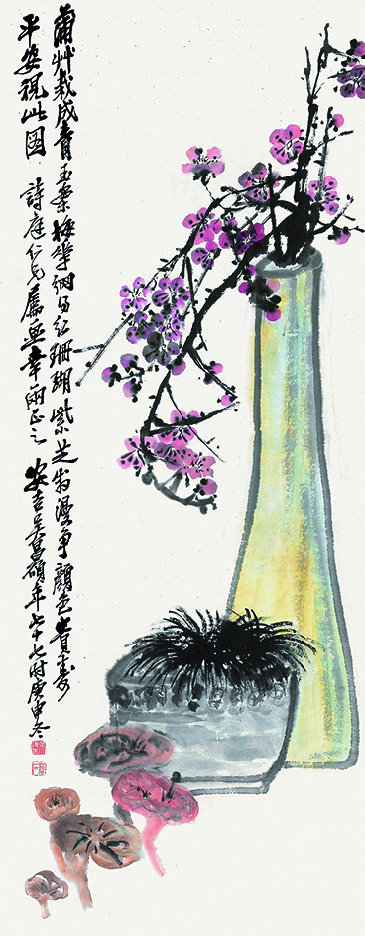 蒲艸栽成青玉案梅華网得紅珊瑚紫芝翁漫爭顏色貴壽
平安視此圖 詩庭仁兄屬畫幸正之 安吉吳昌碩年七十七時庚申冬